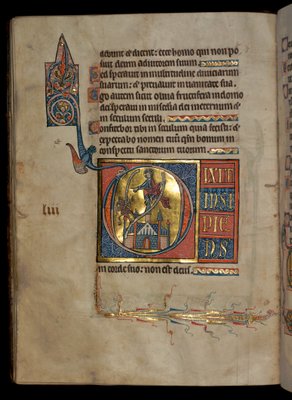 debunt et dicent: ecce homo qui non po
suit deum adiutorem suum.
Sed speravit in multitudine diviciarum
suarum: et prevaluit in vanitate sua.
Ego autem sicut oliva fructifera in domo
dei: speravi in misericordia dei in eternum et
in seculum seculi.
Confitebor tibi in seculum quia fecisti: et
expectabo nomen tuum quoniam bonum in
conspectu sanctorum tuorum.
DIXIT
INSI
PIE
NS
lii
in corde suo: non est deus.